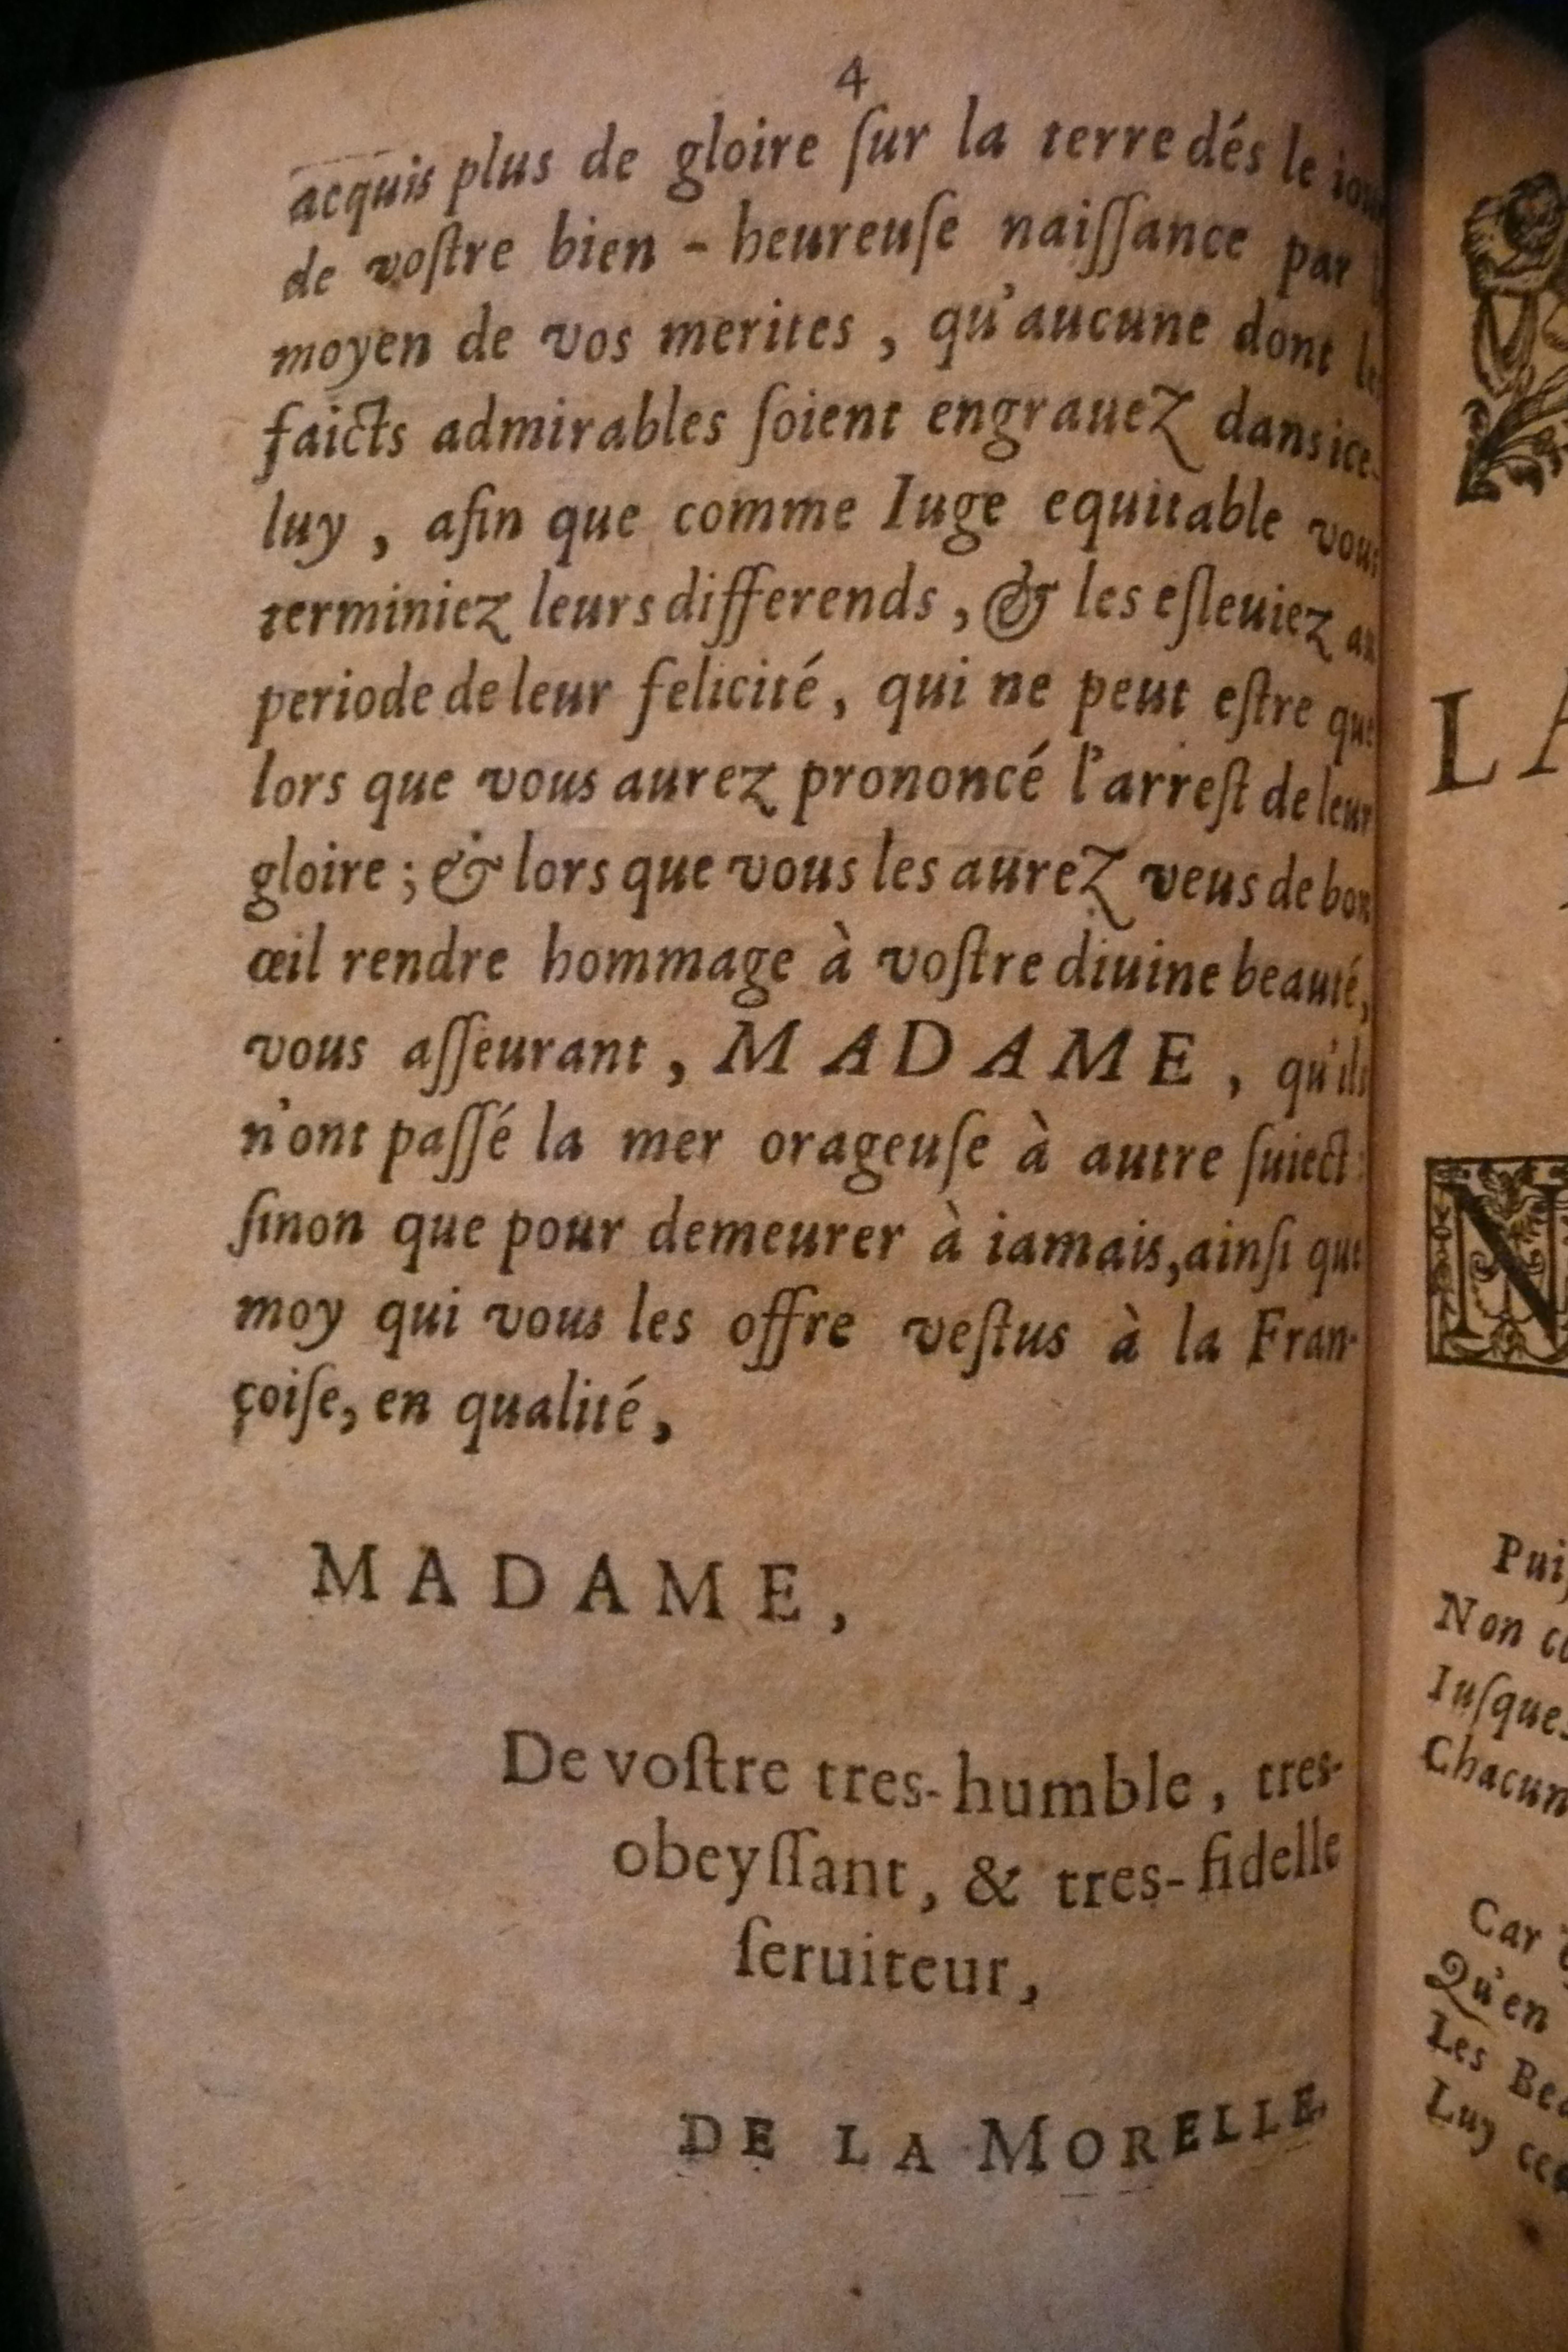 4
acquis plus de gloire ſur la terre dés le iour
de voſtre bien - heureuſe naiſſance par
moyen de vos merites , qu'aucune dont les
faicts admirables ſoient engrauez dans ice-
luy , afin que comme Iuge equitable vous
terminiez leurs differends , & les eſleuiez au
periode de leur felicité , qui ne peut eſtre que
lors que vous aurez prononcé l'arreſt de leur
gloire ; & lors que vous les aurez veus de bon
œil rendre hommage à voſtre diuine beauté,
vous aſſeurant , MADAME , qu'ils
n'ont paſſé la mer orageuſe à autre ſuiect
ſinon que pour demeurer à iamais, ainſi que
moy qui vous les offre veſtus à la Fran-
çoiſe, en qualité ,
MADAME ,
De voſtre tres-humble , tres-
obeyſſant , & tres-fidelle
ſeruiteur ,
DE LA MORELLE.
N
Non
Chacun
Car
Qu'en
Les
Luy